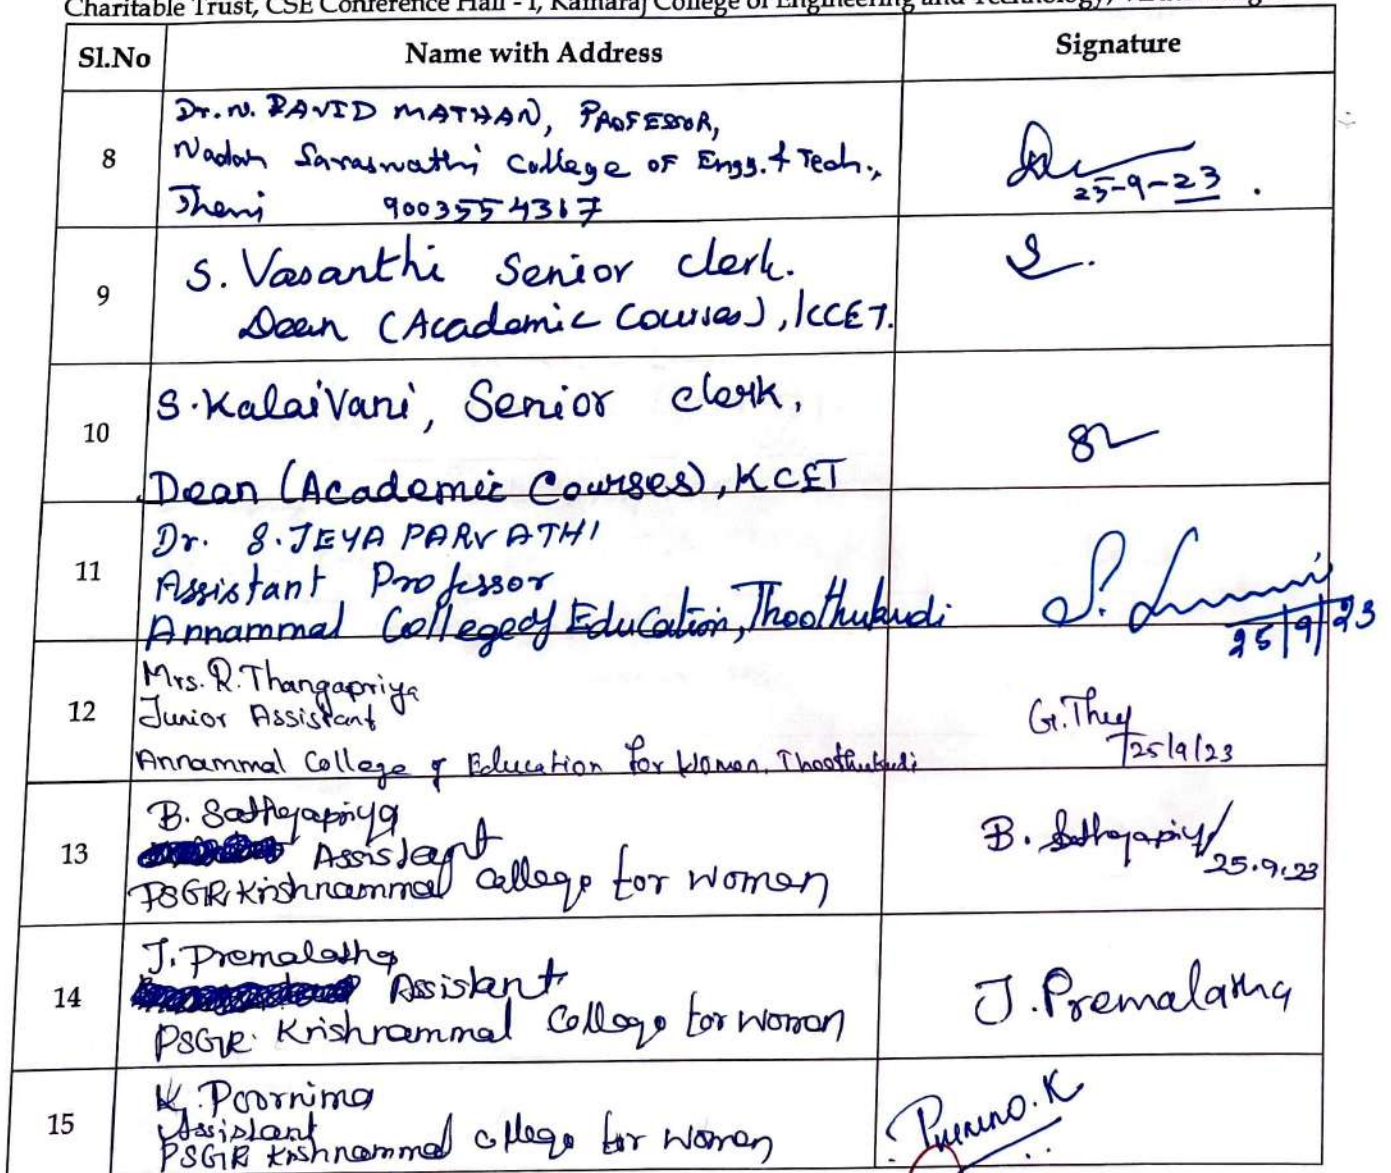 Charitable Trust, CSE Conference Hall - I, Kamaraj College of Engineering and Technology,
Sl.No Name with Address Signature
8 Dr. N. DAVID MATHAN, PROFESSOR,
Nadar Saraswathi College of Engg. & Tech.,
Theni 9003554317
25-9-23
9 S. Vasanthi Senior clerk.
Dean (Academic Courses), KCET.
S.
10 S. Kalaivani, Senior clerk,
Dean (Academic Courses), KCET
11 Dr. S. JEYA PARVATHI
Assistant Professor
Annammal College of Education, Thoothukudi
25/9/23
12 Mrs. R. Thangapriya
Junior Assistant
Annammal College of Education for Women, Thoothukudi
25/9/23
13 B. Sathyapriya
Assistant
PSGR Krishnammal college for women
B. Sathyapriya
25.9.23
14 J. Premalatha
Assistant
PSGR Krishnammal College for women
J. Premalatha
15 K. Poornima
Assistant
PSGR Krishnammal college for women